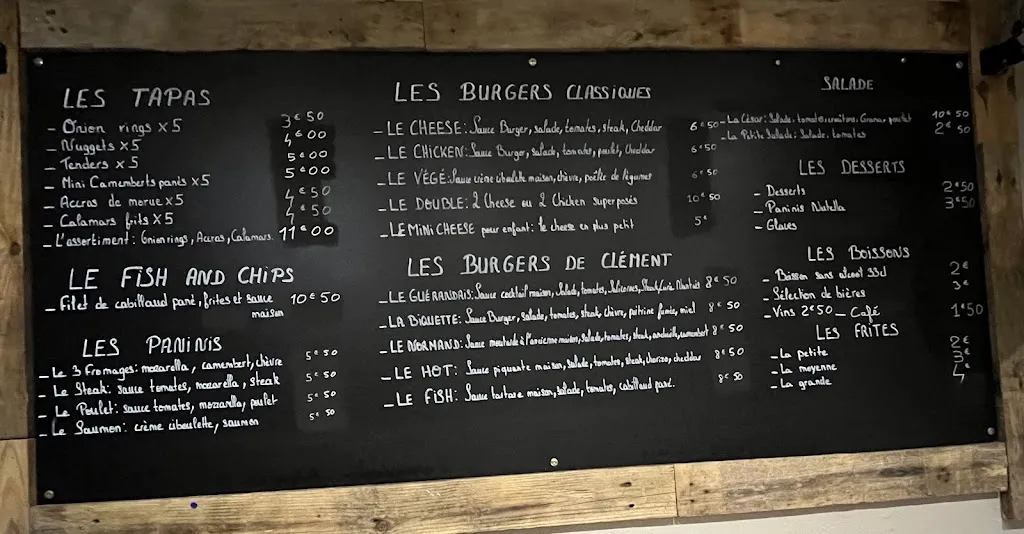 LES TAPAS
- Onion rings x5 3€50
- Nuggets x5 4€00
- Tenders x5 5€00
- Mini Camemberts panés x5 5€00
- Accras de morue x5 4€50
- Calamars frits x5 4€50
- L'assortiment: Onion rings, Accras, Calamars. 11€00
LE FISH AND CHIPS
- Filet de cabillaud pané, frites et sauce maison 10€50
LES PANINIS
- Le 3 Fromages: mozarella, camembert, chèvre 5€50
- Le Steak: sauce tomates, mozarella, steak 5€50
- Le Poulet: sauce tomates, mozzarella, poulet 5€50
- Le Saumon: crème ciboulette, saumon 5€50
LES BURGERS CLASSIQUES
- LE CHEESE: Sauce Burger, salade, tomates, steak, Cheddar 6€50
- LE CHICKEN: Sauce Burger, salade, tomates, poulet, Cheddar 6€50
- LE VÉGÉ: Sauce crème ciboulette maison, chèvre, poêlée de légumes 6€50
- LE DOUBLE: 2 Cheese ou 2 Chicken superposés 10€50
- LE MINI CHEESE pour enfant: le cheese en plus petit 5€
LES BURGERS DE CLÉMENT
- LE GUÉRANDAIS: Sauce cocktail maison, Salade, tomates, Salicornes, Steak, Curé Nantais 8€50
- LA BIQUETTE: Sauce Burger, salade, tomates, steak, chèvre, poitrine fumée, miel 8€50
- LE NORMAND: Sauce moutarde à l'ancienne maison, salade, tomates, steak, andouille, camembert 8€50
- LE HOT: Sauce piquante maison, salade, tomates, steak, chorizo, cheddar 8€50
- LE FISH: Sauce tartare maison, salade, tomates, cabillaud pané. 8€50
SALADE
- La César: Salade, tomates, croûtons, Grana, poulet 10€50
- La Petite Salade: Salade, tomates 2€50
LES DESSERTS
- Desserts 2€50
- Paninis Nutella 3€50
- Glaces
LES BOISSONS
- Boisson sans alcool 33cl 2€
- Sélection de bières 3€
- Vins 2€50 - Café 1€50
LES FRITES
- La petite 2€
- La moyenne 3€
- La grande 4€